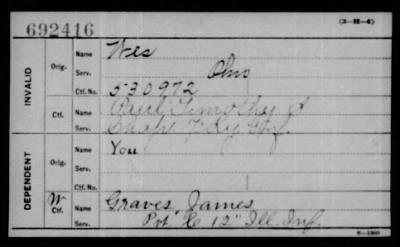 692416
(3-H-4)
INVALID
Orig.
Name Wes
Serv. Ohio
Ctf. No. 530972
Ctf.
Name Paul Timothy S
Serv.
DEPENDENT
Orig.
Name You
Serv.
Ctf. No.
W
Ctf.
Name Graves, James
Serv. Pvt 12" Ill. Inf.